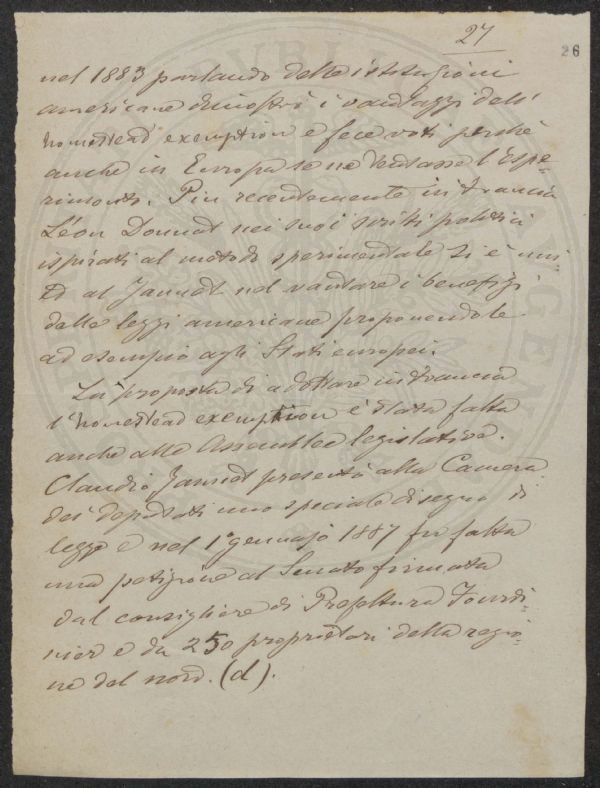 27
26
nel 1883 parlando delle istituzioni
americane dimostrò i vantaggi dell'
homestead exemption e fece voti perchè
anche in Europa se ne tentasse l'espe-
rimento. Più recentemente in Francia
Léon Donnat nei suoi scritti politici
ispirati al metodo sperimentale si è uni
to al Jannet nel vantare i benefizi
delle leggi americane proponendole
ad esempio agli Stati europei.
La proposta di adottare in Francia
l'homestead exemption è stata fatta
anche alle Assemblee legislative.
Claudio Jannet presentò alla Camera
dei deputati uno speciale disegno di
legge e nel 1° gennajo 1887 fu fatta
una petizione al Senato firmata
dal consigliere di Prefettura Fourdi-
nier e da 250 proprietari della regio-
ne del nord. (d).